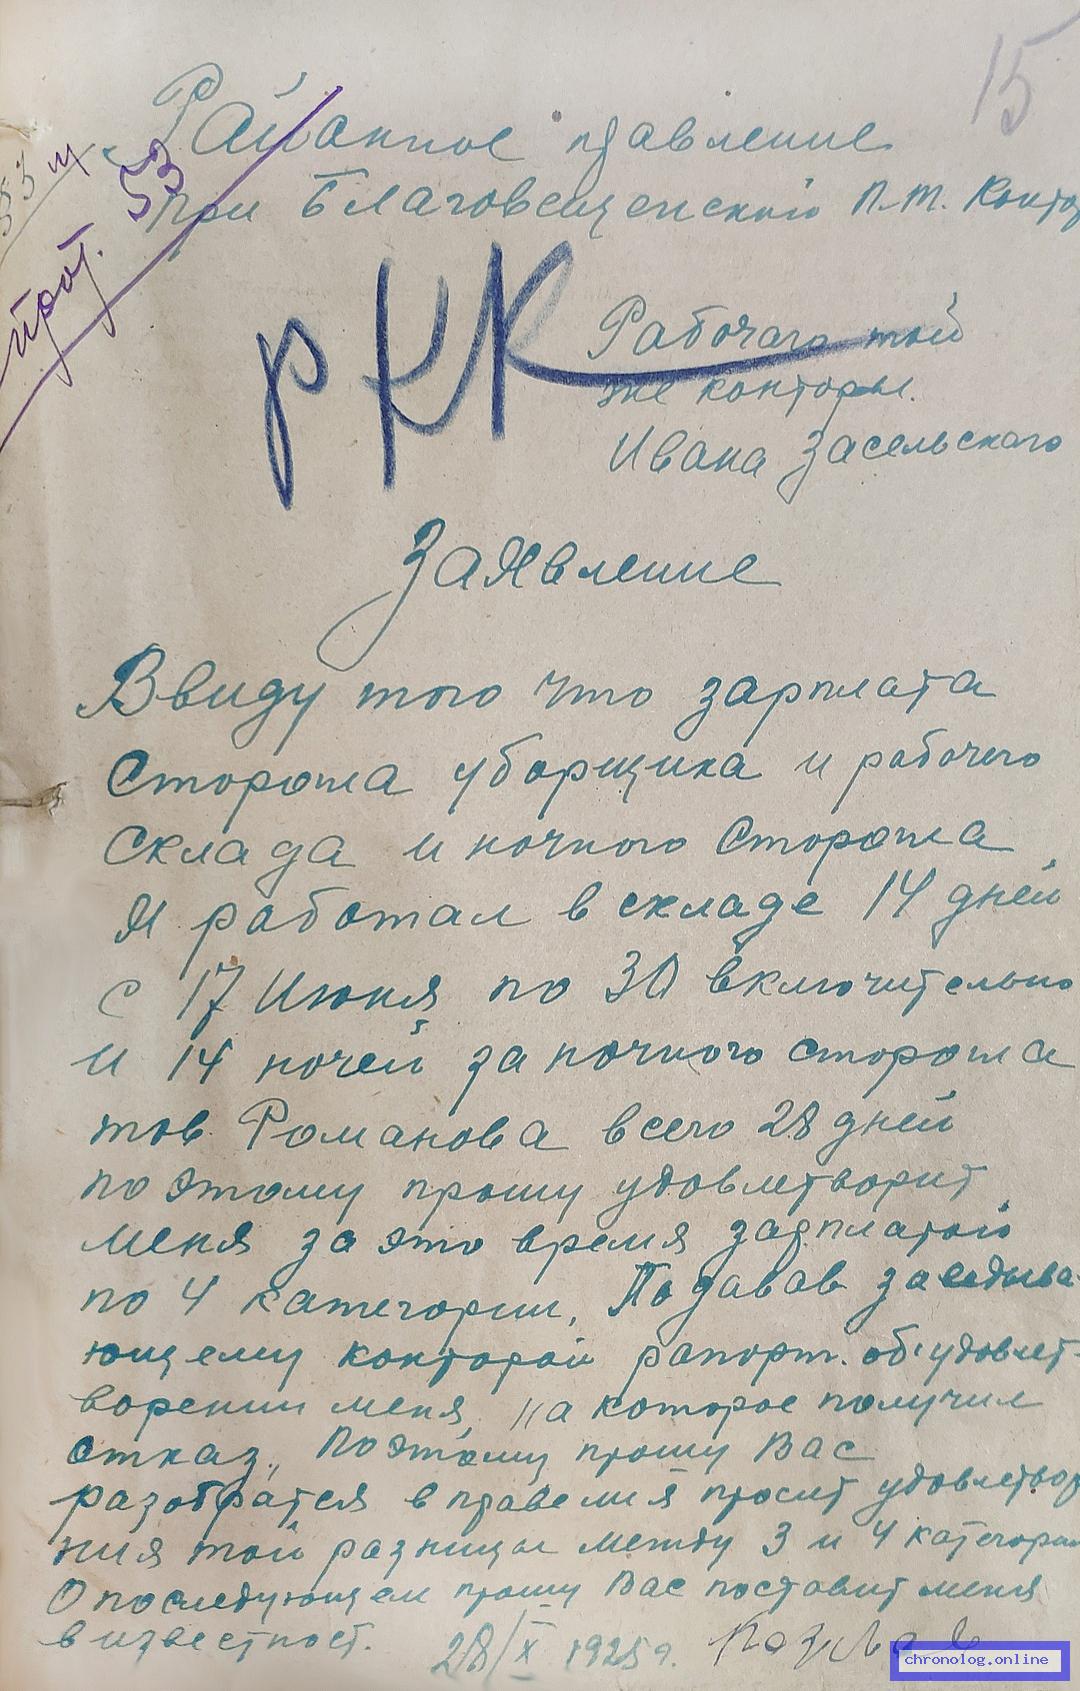 15
Районное правление
53 ш
прот. 53
при Благовещенской П.Т. Контор
РКК
Рабочаго той
же конторы.
Ивана Засельскаго
Заявление
Ввиду того что зарплата
Сторожа уборщика и рабочего
склада и ночного Сторожа,
Я работал в складе 14 дней
с 17 Июня по 30 включительно
и 14 ночей за ночного сторожа
тов. Романова всего 28 дней
поэтому прошу удовлетворит
меня за это время зарплатой
по 4 категории, Подавав заведыва-
ющему конторой рапорт. об удовлет-
ворении меня, на которое получил
отказ, Поэтому прошу Вас
разобратся в правелия просит удовлетвор
ния той разницы между 3 и 4 категории
О последующем прошу Вас поставит меня
в известност.
28/X 1925 г.
chronolog.online